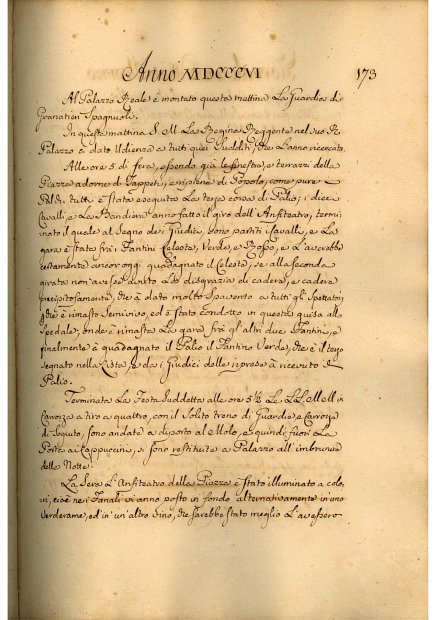 Anno MDCCCVI 173
Al Palazzo Reale è montato questa mattina La Guardia di
Granatieri Spagnuoli.
In questa mattina S. M. La Regina Reggente nel suo R.
Palazzo à dato Udienza a tutti quei Sudditi, che L'anno ricercata.
Alle ore 5 di sera, essendo già le finestre, e terrazzi della
Piazza adorne di Tappeti, e ripiene di Popolo, come pure i
Palchi, tutti è stata eseguita La terza corsa di Palio; i dieci
Cavalli, e La Bandiera anno fatto il giro dell'Anfiteatro, termi
nato il quale al segno dei Giudici, sono partiti i Cavalli, e La
gara è stata fra i Fantini Celeste, Verde, e Rosso, e L'averebbe
certamente ancor oggi guadagnato il Celeste, se alla Seconda
girata non avesse avuto La disgrazia di cadere, e cadere
precipitosamente, che à dato molto Spavento a tutti gli Spettatori,
che è rimasto Semivivo, ed è stato condotto in questa guisa allo
Spedale; onde è rimasta La gara fra gli altri due Fantini, e
finalmente à guadagnato il Palio il Fantino Verde, che è il terzo
segnato nella Lista, e da i Giudici delle imprese à ricevuto il
Palio.
Terminata La Festa Suddetta alle ore 5½ Le LL. MM. in
Carrozza a tiro a quattro, con il Solito treno di Guardie e Carrozze
di Seguito, sono andate a diporto al Molo, e quindi fuori La
Porta ai Cappuccini, e sono restituite a Palazzo all'imbrunire
della Notte.
La Sera L'Anfiteatro della Piazza è stato illuminato a colo
ri, cioè nei Fanali vi anno posto in fondo alternativamente in uno
Verderame, ed in un altro Vino, che sarebbe stato meglio L'avessero